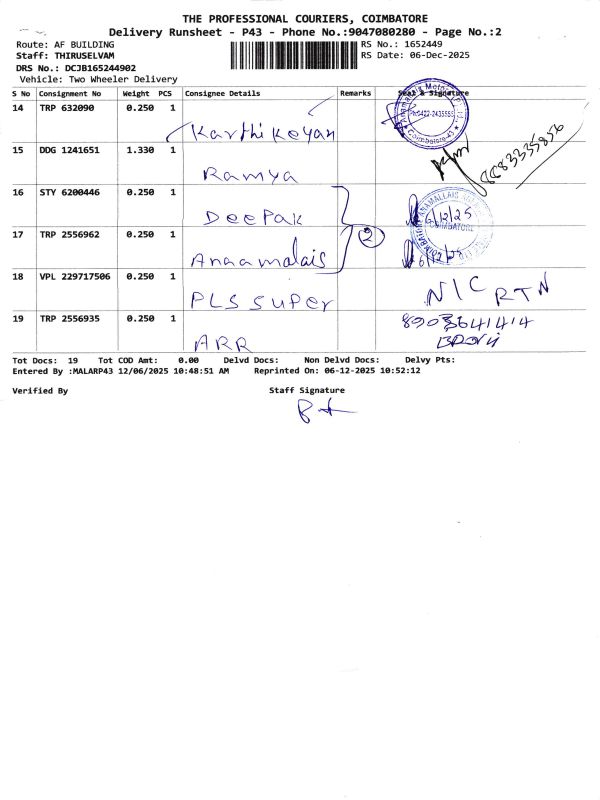 THE PROFESSIONAL COURIERS, COIMBATORE
Delivery Runsheet - P43 - Phone No.:9047080280 - Page No.:2
Route: AF BUILDING
Staff: THIRUSELVAM
DRS No.: DCJB165244902
Vehicle: Two Wheeler Delivery
RS No.: 1652449
RS Date: 06-Dec-2025
S No Consignment No Weight PCS Consignee Details Remarks Seal & Signature
14 TRP 632090 0.250 1 Karthikeyan
15 DDG 1241651 1.330 1 Ramya
16 STY 6200446 0.250 1 Deepak 6/12/25
17 TRP 2556962 0.250 1 Annamalais 2
18 VPL 229717506 0.250 1 PLS super N/C RTN
19 TRP 2556935 0.250 1 ARR 8903641414
Tot Docs: 19 Tot COD Amt: 0.00 Delvd Docs: Non Delvd Docs: Delvy Pts:
Entered By :MALARP43 12/06/2025 10:48:51 AM Reprinted On: 06-12-2025 10:52:12
Verified By Staff Signature